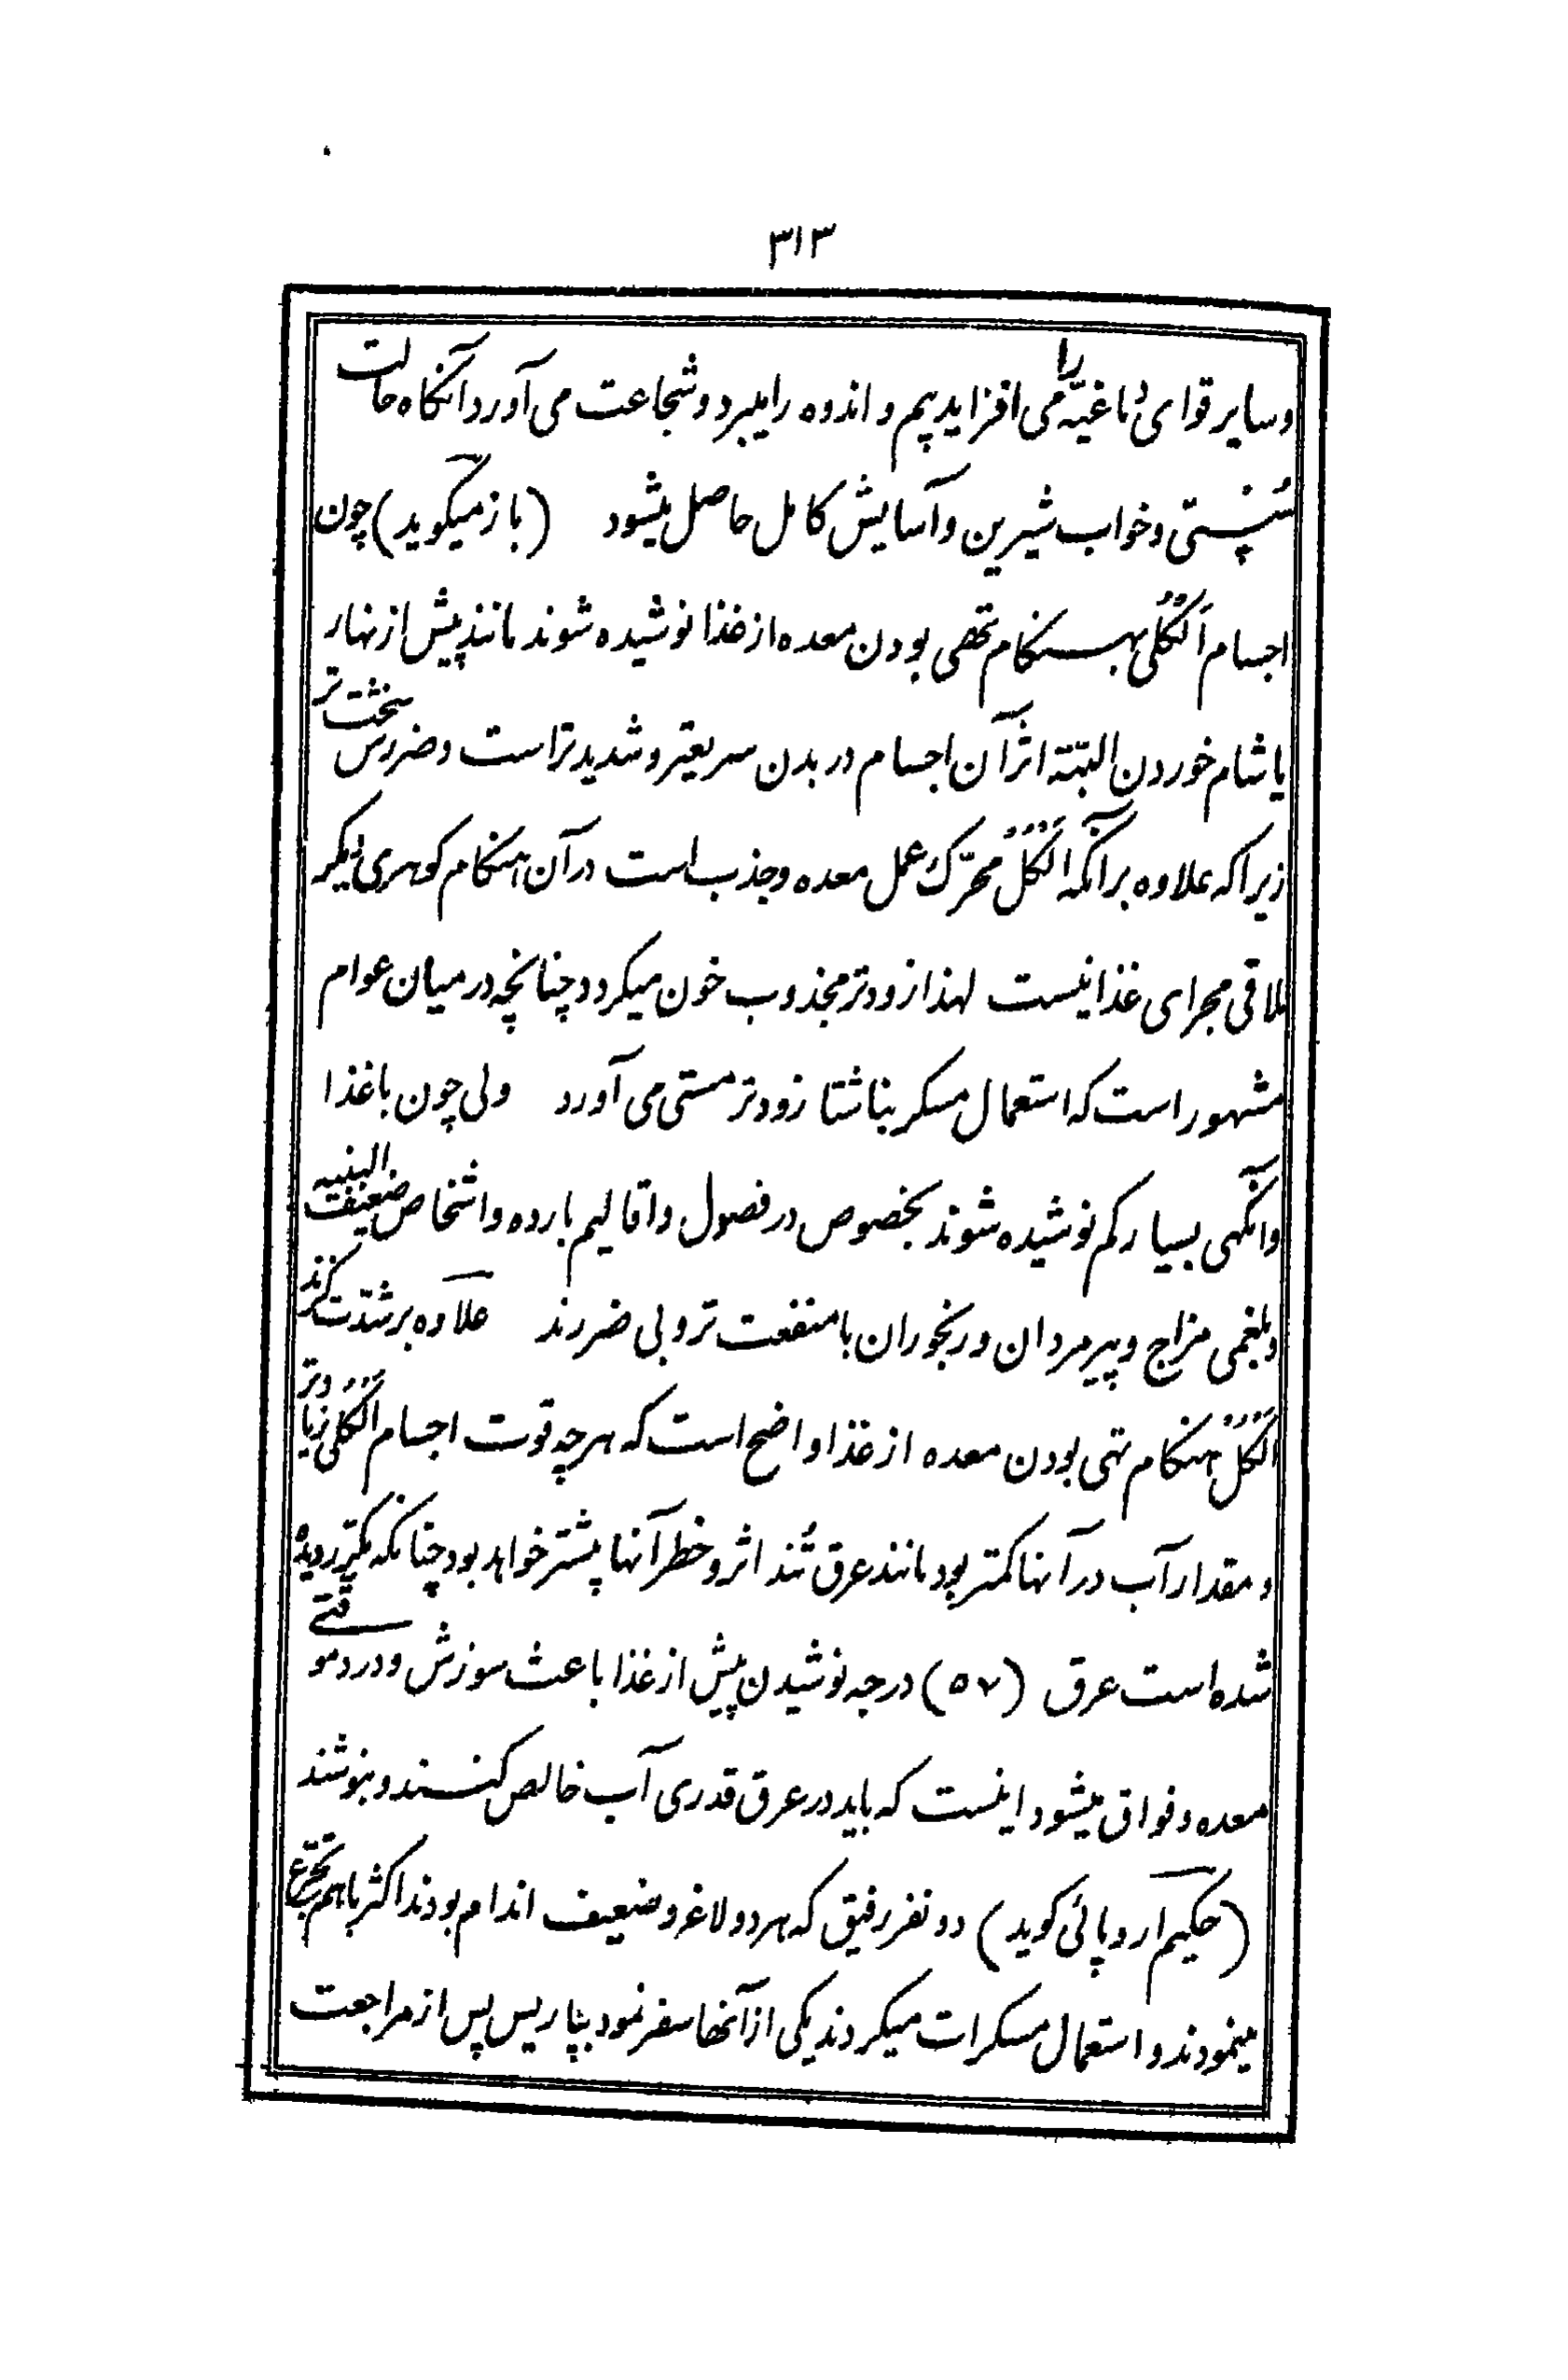 ۳۱۳
و سایر قوای دماغیّه را می افزاید بیم و اندوه را میبرد و شجاعت می آورد آنگاه حالت
سُستی و خواب شیرین و آسایش کامل حاصل میشود (باز میگوید) چون
اجسام اَلکُلی بهنگام تهی بودن معده از غذا نوشیده شوند مانند پیش از نهار
یا شام خوردن البتّه اثر آن اجسام در بدن سریعتر و شدیدتر است و ضررش سخت تر
زیرا که علاوه بر آنکه الکُل محرّک عمل معده و جذب است در آن هنگام گوهری دیگر
ملاقی مجرای غذا نیست لهذا زودتر مجذوب خون میگردد چنانچه در میان عوام
مشهور است که استعمال مسکر بناشتا زودتر مستی می آورد ولی چون با غذا
و انگهی بسیار کم نوشیده شوند بخصوص در فصول و اقالیم بارده و اشخاص ضعیف البنیه
و بلغمی مزاج و پیرمردان و رنجوران با منفعت تر و بی ضررند علاوه بر شدّت گزند
الکُل هنگام تهی بودن معده از غذا واضح است که هرچه قوت اجسام الکُلی زیادتر
و مقدار آب در آنها کمتر بود مانند عرق تُند اثر و خطر آنها بیشتر خواهد بود چنانکه مکرّر دیده
شده است عرق (۵۷) درجه نوشیدن پیش از غذا باعث سوزش و درد موقتی
معده و فواق میشود اینست که باید در عرق قدری آب خالص کنند و بنوشند
(حکیم اروپائی گوید) دو نفر رفیق که هر دو لاغر و ضعیف اندام بودند اکثر باهم تجرّع
مینمودند و استعمال مسکرات میکردند یکی از آنها سفر نمود بپاریس پس از مراجعت